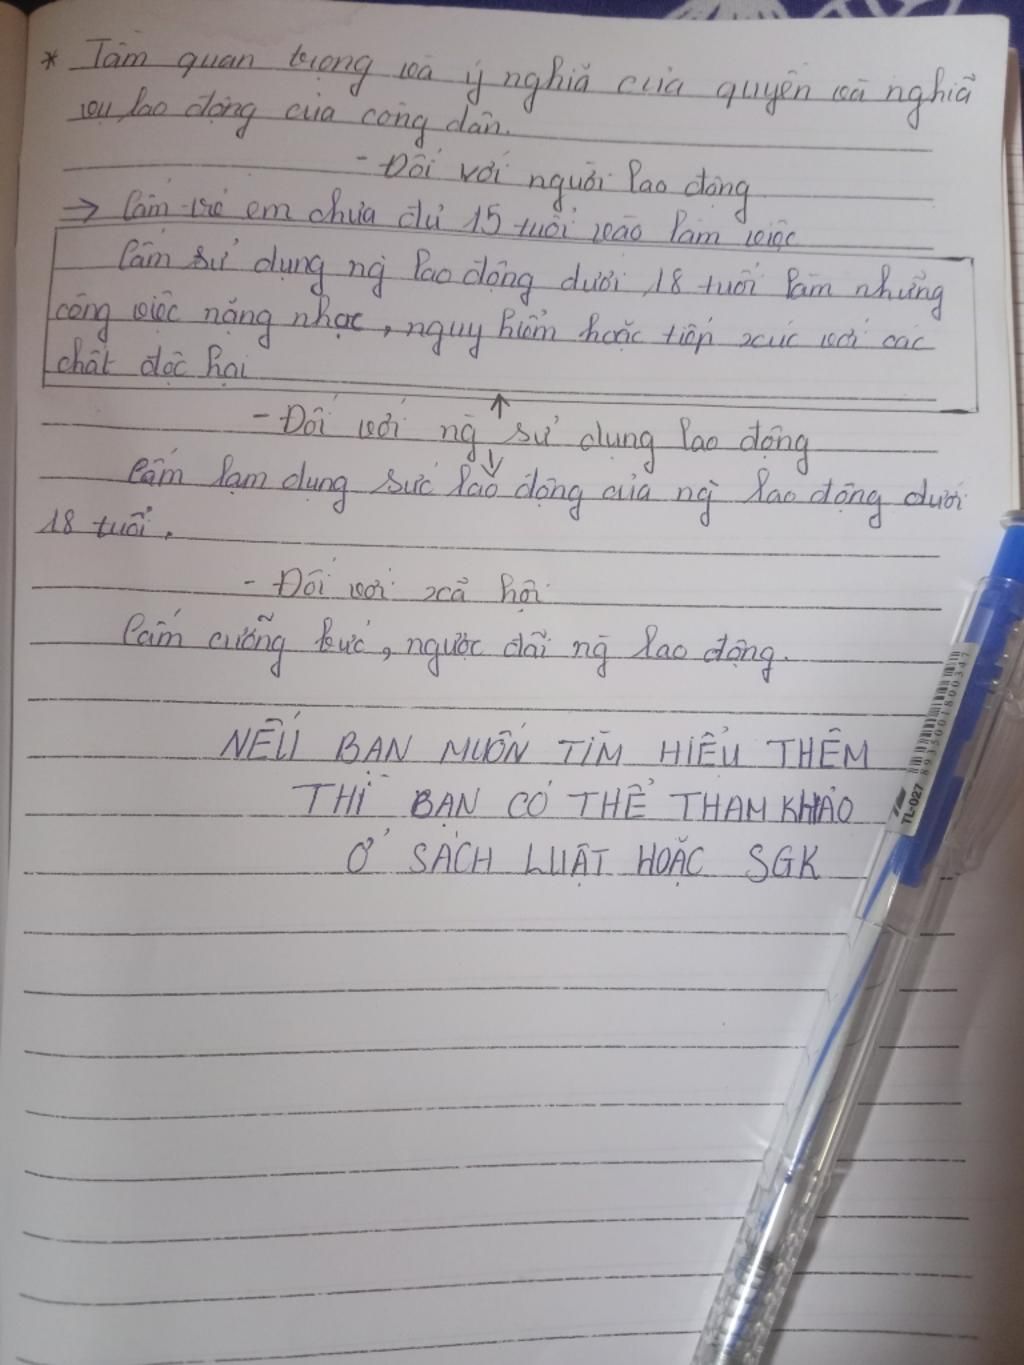 * Tầm quan trọng và ý nghĩa của quyền và nghĩa
vụ lao động của công dân.
- Đối với người lao động
→ Cấm trẻ em chưa đủ 15 tuổi vào làm việc
Cấm sử dụng ng` lao động dưới 18 tuổi làm những
công việc nặng nhọc, nguy hiểm hoặc tiếp xúc với các
chất độc hại
- Đối với ng` sử dụng lao động
Cấm lạm dụng sức lao động của ng` lao động dưới
18 tuổi.
- Đối với xã hội
Cấm cưỡng bức, ngược đãi ng` lao động.
NẾU BẠN MUỐN TÌM HIỂU THÊM
THÌ BẠN CÓ THỂ THAM KHẢO
Ở SÁCH LUẬT HOẶC SGK
TL-027
8935001800347